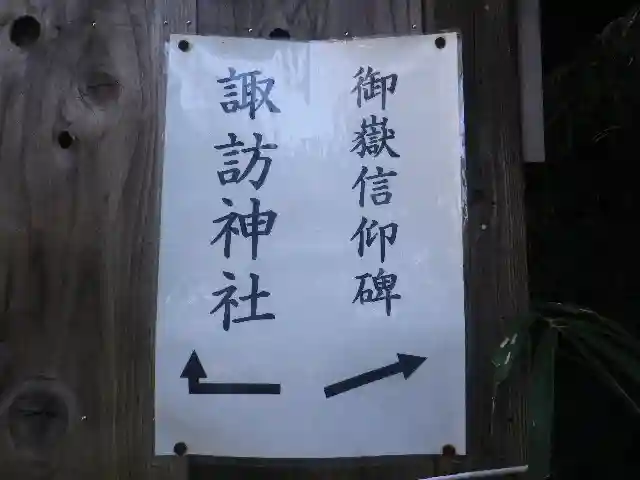 御嶽信仰碑
諏訪神社